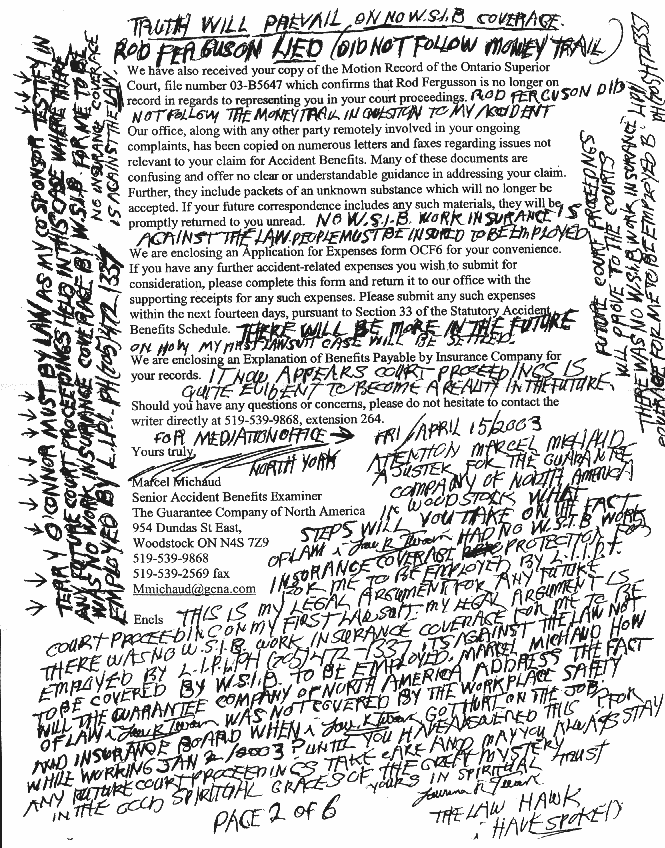 TRUTH WILL PREVAIL, ON NO W.S.I.B COVERAGE.
ROD FERGUSON LIED (DID NOT FOLLOW MONEY TRAIL)
We have also received your copy of the Motion Record of the Ontario Superior
Court, file number 03-B5647 which confirms that Rod Fergusson is no longer on
record in regards to representing you in your court proceedings. ROD FERGUSON DID
NOT FOLLOW THE MONEY TRAIL IN QUESTION TO MY ACCIDENT
Our office, along with any other party remotely involved in your ongoing
complaints, has been copied on numerous letters and faxes regarding issues not
relevant to your claim for Accident Benefits. Many of these documents are
confusing and offer no clear or understandable guidance in addressing your claim.
Further, they include packets of an unknown substance which will no longer be
accepted. If your future correspondence includes any such materials, they will be
promptly returned to you unread. NO W.S.I.B. WORK INSURANCE IS
AGAINST THE LAW. PEOPLE MUST BE INSURED TO BE EMPLOYED
We are enclosing an Application for Expenses form OCF6 for your convenience.
If you have any further accident-related expenses you wish to submit for
consideration, please complete this form and return it to our office with the
supporting receipts for any such expenses. Please submit any such expenses
within the next fourteen days, pursuant to Section 33 of the Statutory Accident
Benefits Schedule. THERE WILL BE MORE IN THE FUTURE
ON HOW MY FIRST LAWSUIT CASE WILL BE SETTLED.
We are enclosing an Explanation of Benefits Payable by Insurance Company for
your records. IT NOW APPEARS COURT PROCEEDINGS IS
QUITE EVIDENT TO BECOME A REALITY IN THE FUTURE.
Should you have any questions or concerns, please do not hesitate to contact the
writer directly at 519-539-9868, extension 264.
FOR MEDIATION OFFICE
NORTH YORK
Yours truly,
Marcel Michaud
Senior Accident Benefits Examiner
The Guarantee Company of North America
954 Dundas St East,
Woodstock ON N4S 7Z9
519-539-9868
519-539-2569 fax
Mmichaud@gcna.com
Encls
FRI/APRIL 15/2003
ATTENTION MARCEL MICHAUD
ADJUSTER FOR THE GUARANTEE
COMPANY OF NORTH AMERICA
IN WOODSTOCK WHAT
STEPS WILL YOU TAKE ON THE FACT
OF LAW HAD NO W.S.I.B WORK
INSURANCE COVERAGE PROTECTION FOR
FOR ME TO BE EMPLOYED BY L.I.P.I.
THIS IS MY LEGAL ARGUMENT FOR ANY FUTURE
COURT PROCEEDING ON MY FIRST LAWSUIT. MY LEGAL ARGUMENT IS
THERE WAS NO W.S.I.B. WORK INSURANCE COVERAGE FOR ME TO BE
EMPLOYED BY L.I.P.I. PH (705) 472-1337. IS AGAINST THE LAW NOT
TO BE COVERED BY W.S.I.B. TO BE EMPLOYED. MARCEL MICHAUD HOW
WILL THE GUARANTEE COMPANY OF NORTH AMERICA ADDRESS THE FACT
OF LAW WAS NOT COVERED BY THE WORKPLACE SAFETY
AND INSURANCE BOARD WHEN GOT HURT ON THE JOB
WHILE WORKING JAN 2/2003? UNTIL YOU HAVE ANSWERED THIS FOR
ANY FUTURE COURT PROCEEDINGS TAKE CARE AND MAY YOU ALWAYS STAY
IN THE GOOD SPIRITUAL GRACES OF THE GREAT MYSTERY
YOURS IN SPIRITUAL TRUST
THE LAW HAWK
I HAVE SPOKEN
PAGE 2 OF 6
TERRY O'CONNOR MUST BY LAW AS MY CO SPONSOR TESTIFY IN
ANY FUTURE COURT PROCEEDINGS HELD IN THIS CASE WHERE THERE
WAS NO WORK INSURANCE COVERAGE BY W.S.I.B. FOR ME TO BE
EMPLOYED BY L.I.P.I. PH (705) 472-1337
NO INSURANCE COVERAGE
IS AGAINST THE LAW.
FUTURE COURT PROCEEDINGS
WILL PROVE TO THE COURTS
THERE WAS NO W.S.I.B WORK INSURANCE
COVERAGE FOR ME TO BE EMPLOYED BY LIPI
PH (705) 472-1337